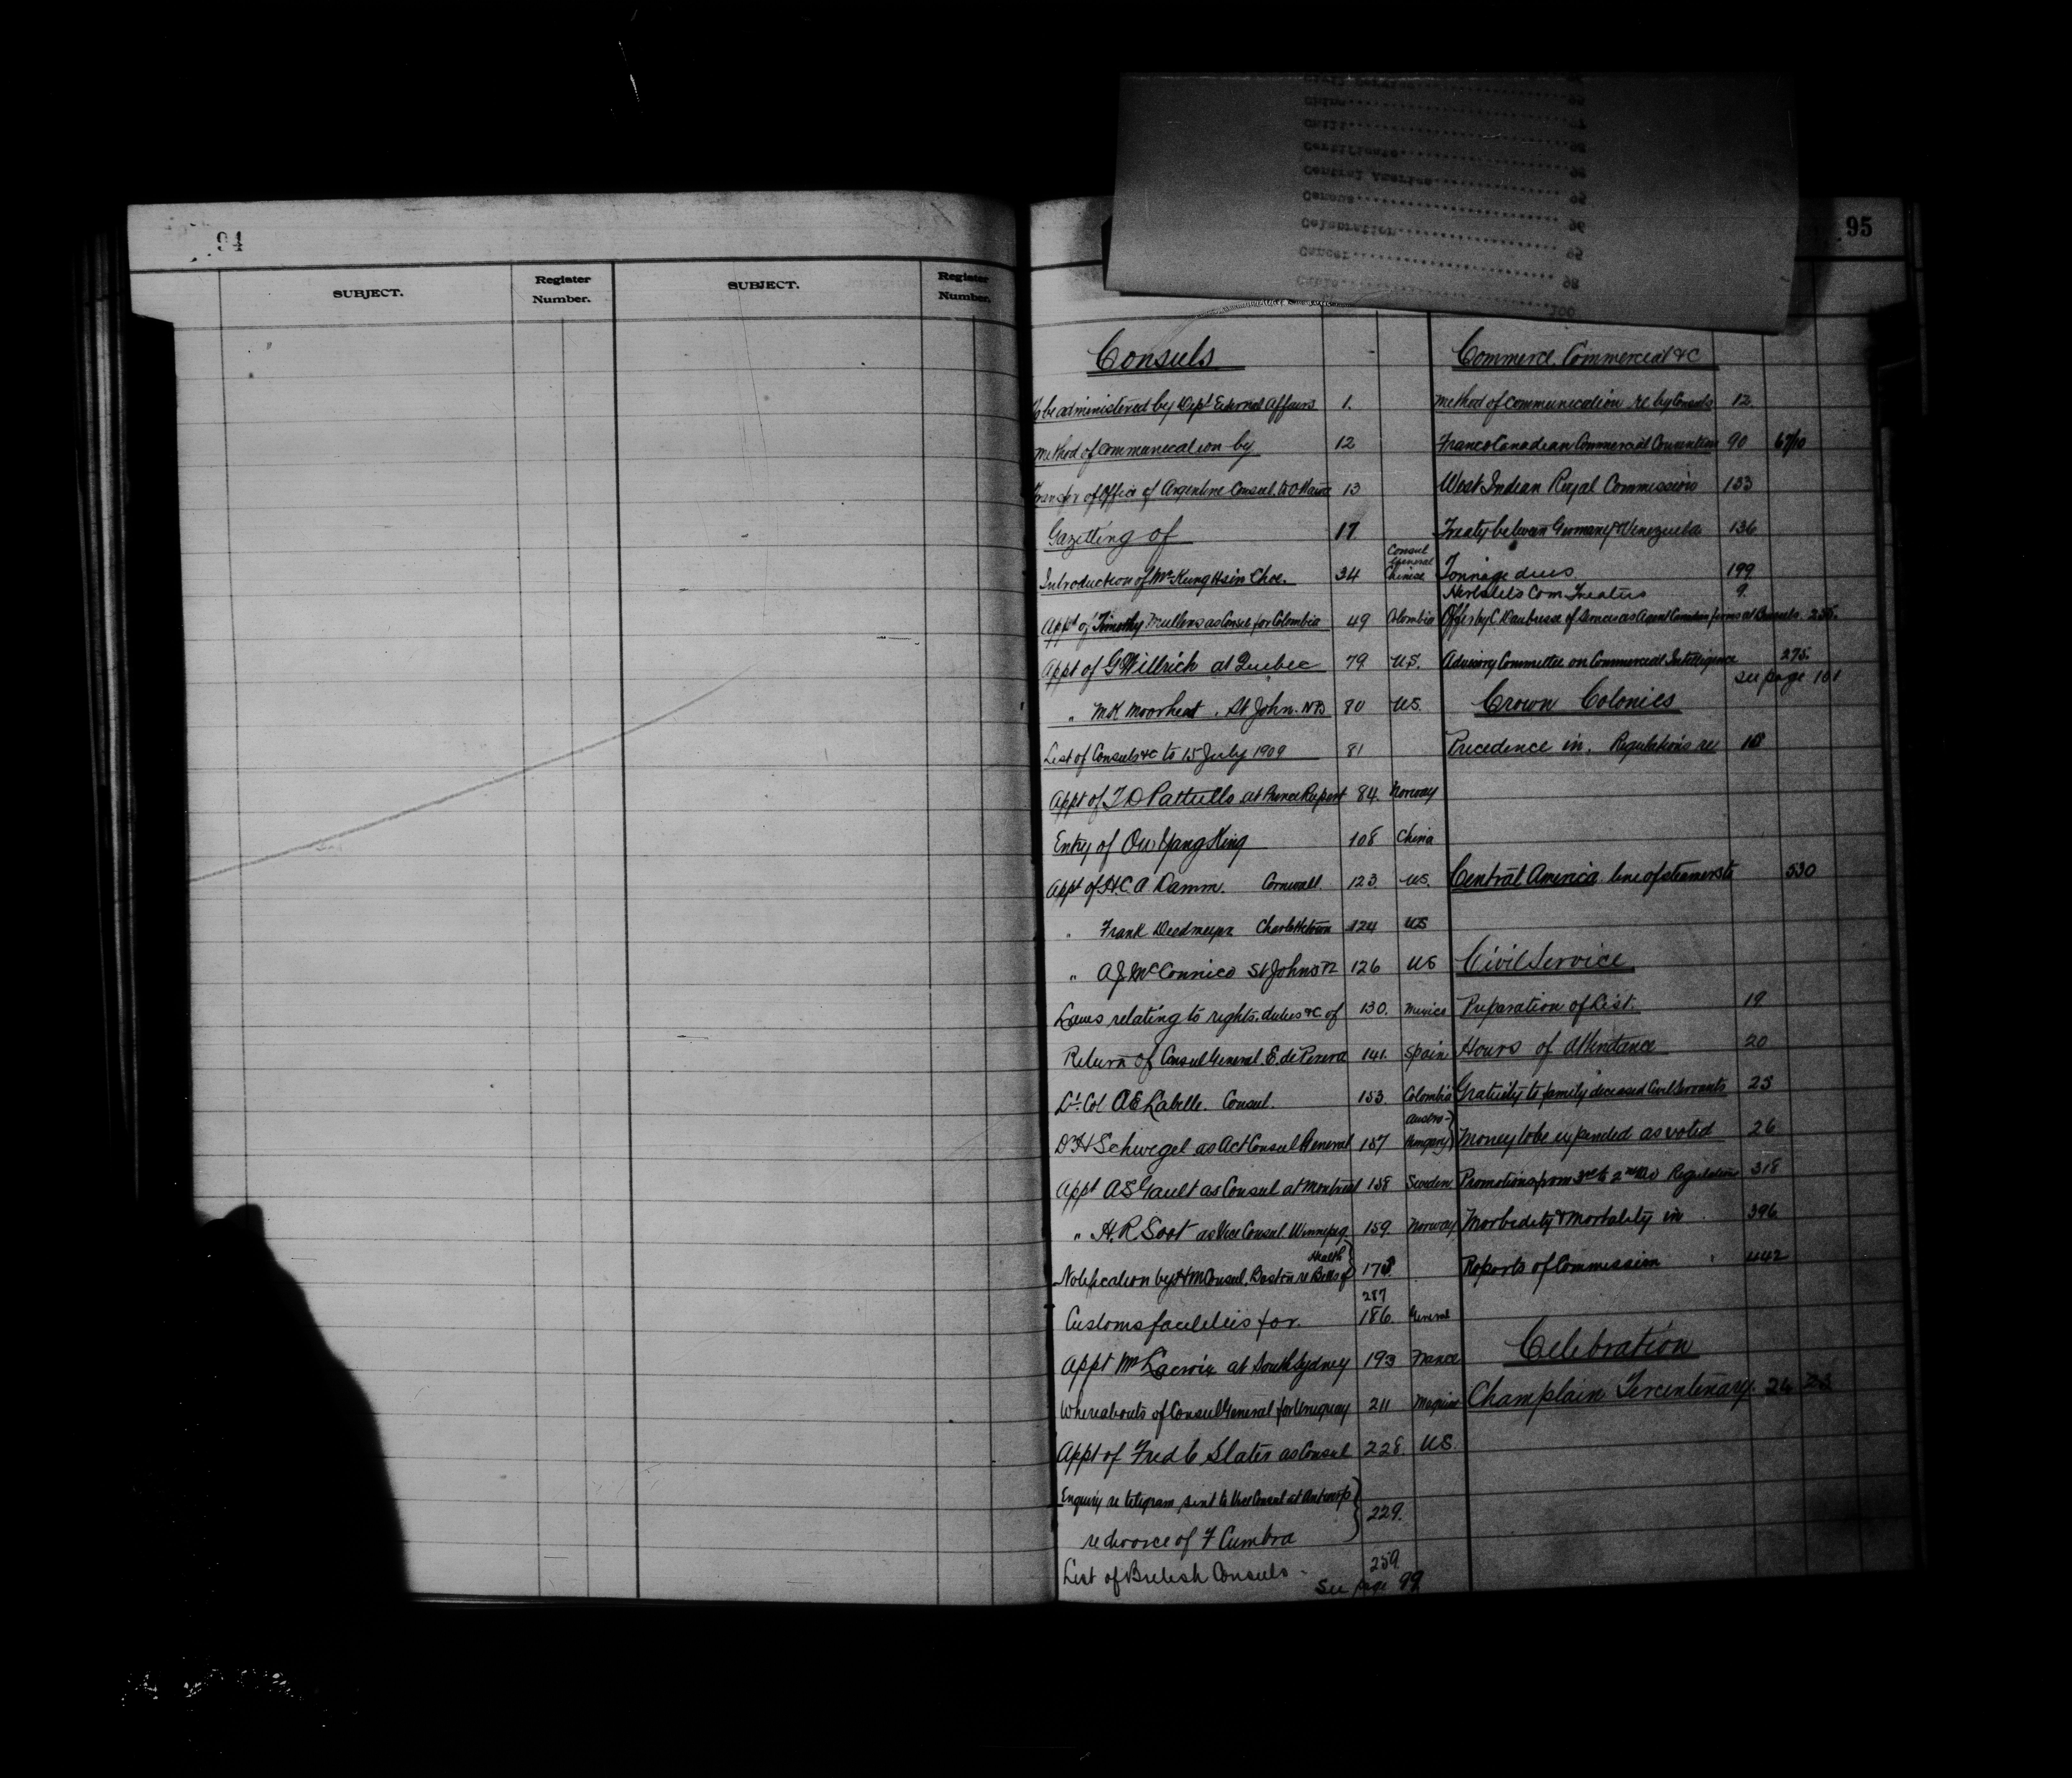 94
SUBJECT.
Register Number.
SUBJECT.
Register Number.
95
Civil Service 95
China 95
Chili 97
Certificate 98
Central America 95
Census 95
Celebration 96
Cancer 95
Cable 98
100
Consuls
To be administered by Dept External Affairs 1.
Method of communication by 12
Transfer of Office of Argentine Consul to Ottawa 13
Gazetting of 17
Introduction of Mr Kung Hsin Choe. 34 Consul General Chinese
Appt of Timothy Mullens as Consul for Colombia 49 Colombia
Appt of G Willrich at Quebec 79 U.S.
" M K Moorhead . St John. NB 80 U.S.
List of Consuls &c to 15 July 1909 81
Appt of T D Pattullo at Prince Rupert 84. Norway
Entry of Ou Yang King 108 China
Appt of H.C.A Damm. Cornwall 123 U.S.
" Frank Deedmeyer Charlottetown 124 US
" A J McConnico St Johns 126 US
Laws relating to rights. duties &c of 130. Mexico
Return of Consul General. E. de Perera 141. Spain
Lt. Col A E Labelle. Consul. 153. Colombia
Dr H Schwegel as Act Consul General 157 Austro-Hungary
Appt A S Gault as Consul at Montreal 158 Sweden
" H. R Soot as Vice Consul. Winnipeg 159. Norway
Notification by H M Consul, Boston re Bills of Health 178.
287
Customs facilities for. 186. General
Appt Mr Lacroix at South Sydney 193 France
Whereabouts of Consul General for Uruguay 211
Appt of Fred C Slater as Consul 228. U.S.
Enquiry re telegram sent to Vice Consul at Antwerp
re divorce of F Cumbra 229.
List of British Consuls - 259
See page 99
Commerce Commercial &c
Method of communication re by Consuls 12.
Franco Canadian Commercial Convention 90 67/10
West Indian Royal Commission 133
Treaty between Germany & Venezuela 136
Tonnage dues 199
Hertslets Com Treaties 9.
Offer by C Daubresse of Services as Agent Canadian firms at Brussels. 235.
Advisory Committee on Commercial Intelligence 275.
see page 101
Crown Colonies
Precedence in. Regulations re 18
Central America line of steamers to 530
Civil Service
Preparation of List. 19
Hours of Attendance 20
Gratuity to family deceased Civil Servants 25
Money to be expended as voted 26
Promotions from 3rd to 2nd Div Regulations 318
Morbidity & Mortality in 396
Reports of Commission 442
Celebration
Champlain Tercentenary. 24 23